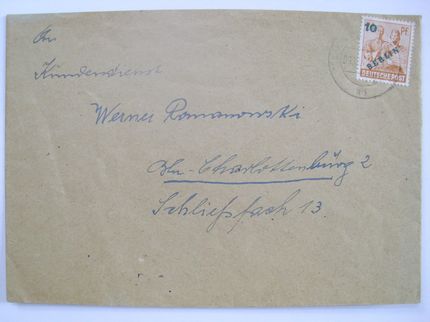 An
Kundendienst
Werner Romanowski
Bln-Charlottenburg 2
Schließfach 13.
10 Pf
BERLIN
DEUTSCHE POST